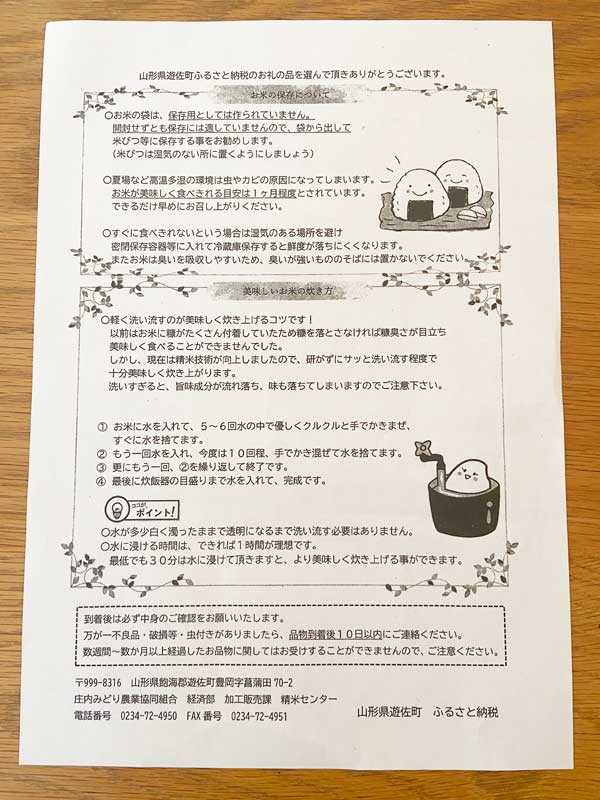 山形県遊佐町ふるさと納税のお礼の品を選んで頂きありがとうございます。
お米の保存について
○お米の袋は、保存用としては作られていません。
開封せずとも保存には適していませんので、袋から出して
米びつ等に保存する事をお勧めします。
(米びつは湿気のない所に置くようにしましょう)
○夏場など高温多湿の環境は虫やカビの原因になってしまいます。
お米が美味しく食べきれる目安は1ヶ月程度とされています。
できるだけ早めにお召し上がりください。
○すぐに食べきれないという場合は湿気のある場所を避け
密閉保存容器等に入れて冷蔵庫保存すると鮮度が落ちにくくなります。
またお米は臭いを吸収しやすいため、臭いが強いもののそばには置かないでください。
美味しいお米の炊き方
○軽く洗い流すのが美味しく炊き上げるコツです!
以前はお米に糠がたくさん付着していたため糠を落とさなければ糠臭さが目立ち
美味しく食べることができませんでした。
しかし、現在は精米技術が向上しましたので、研がずにサッと洗い流す程度で
十分美味しく炊き上がります。
洗いすぎると、旨味成分が流れ落ち、味も落ちてしまいますのでご注意下さい。
① お米に水を入れて、5~6回水の中で優しくクルクルと手でかきまぜ、
すぐに水を捨てます。
② もう一回水を入れ、今度は10回程、手でかき混ぜて水を捨てます。
③ 更にもう一回、②を繰り返して終了です。
④ 最後に炊飯器の目盛りまで水を入れて、完成です。
ココが、
ポイント!
○水が多少白く濁ったままで透明になるまで洗い流す必要はありません。
○水に浸ける時間は、できれば1時間が理想です。
最低でも30分は水に浸けて頂きますと、より美味しく炊き上げる事ができます。
到着後は必ず中身のご確認をお願いいたします。
万が一不良品・破損等・虫付きがありましたら、品物到着後10日以内にご連絡ください。
数週間~数か月以上経過したお品物に関してはお受けすることができませんので、ご注意ください。
〒999-8316 山形県飽海郡遊佐町豊岡字菖蒲田 70-2
庄内みどり農業協同組合 経済部 加工販売課 精米センター
電話番号 0234-72-4950 FAX 番号 0234-72-4951
山形県遊佐町 ふるさと納税